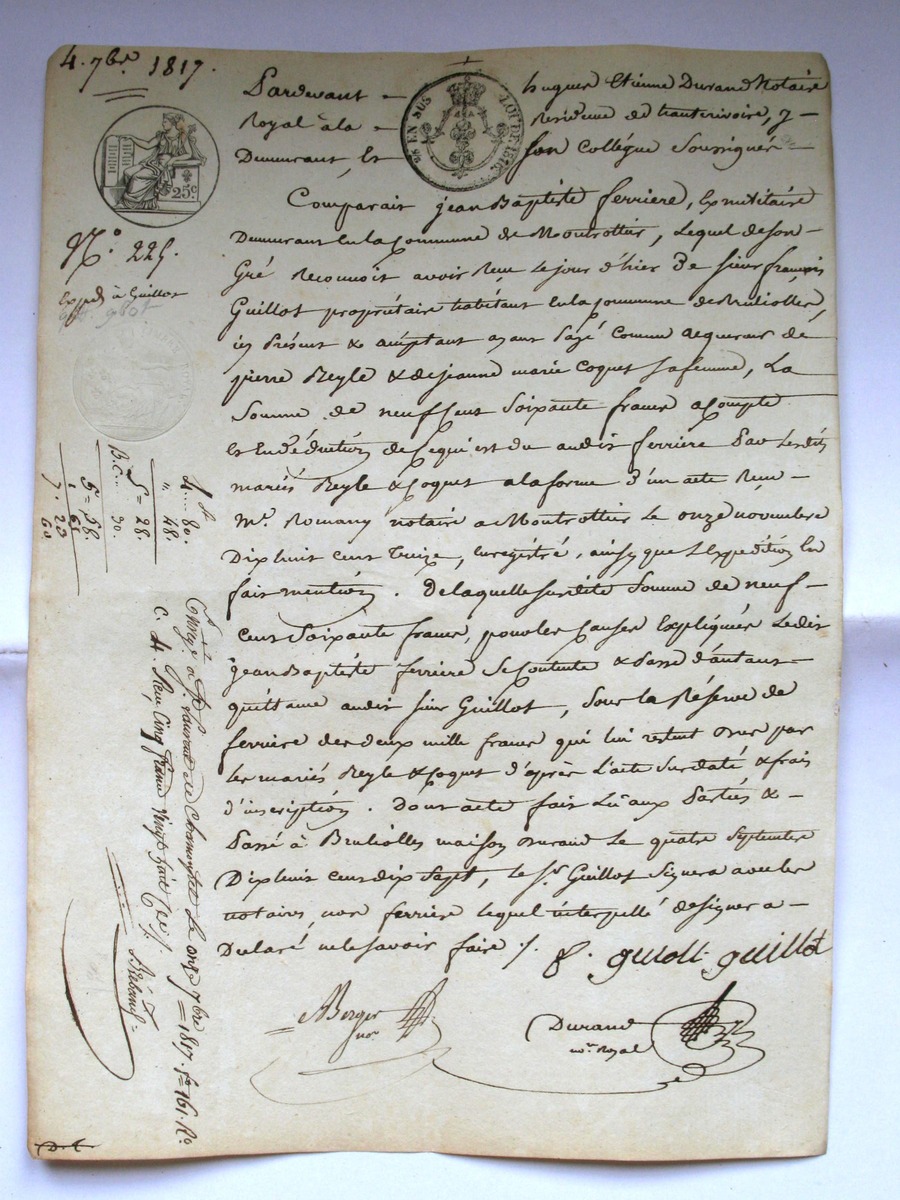 4. 7bre 1817.
Pardevant hugues Etienne Durand Notaire
Royal à la Residence de hauterivoire, y
Demeurant et son Collégue Soussignés
EN SUS LOI DE 1816.
25c
Comparait jean Baptiste ferriere, Ex militaire
Demeurant En la Commune de Montrottier, Lequel de son
N.° 225.
Gré Reconnoit avoir Recu Le jour d'hier De sieur françois
Expd à Guillot
Guillot propriétaire habitant En la Commune de Brulliolles,
ici Présent & acceptant ayant Payé Comme acquereur de
pierre Reyle & de jeanne marie Coquet sa femme, La
Somme de neuf Cent Soixante francs a Compte
Et En Déduction de Ce qui est du audit ferriere Par Lesdits
mariés Reyle & Coquet a la forme d'un acte Recu
Me. Romany notaire a Montrottier Le onze novembre
Dix huit Cent Treize, Enregistré, ainsy que L'Expedition En
fait mention. De laquelle susdite Somme de neuf
Cent Soixante francs, pour les Causes Expliquées Ledit
jean Baptiste ferriere Se Contente & Passe d'autant
quittance audit sieur Guillot, Sous la Réserve de
ferriere des deux mille francs qui lui restent Dus par
Les mariés Reyle & Coquet d'après L'acte Susdaté & frais
d'inscription. Dont acte fait Lu aux Parties &
Passé à Brulliolles maison Durand Le quatre Septembre
Dix huit Cent dix Sept, le Sr. Guillot Signera avec les
notaires, non ferriere lequel interpellé de signer a
Déclaré ne le savoir faire ./.
guillot
Berger
nore
Durand
nre Royal
4... 80.
" 48.
5 = 28.
B.C... 30.
5 = 58.
1 65
7. 23
60
Enregé à St Laurent de Chamousset Le onze 7bre 1817. fo 161. Ro
C. 4. Recu Cinq francs vingt huit Ces ./.